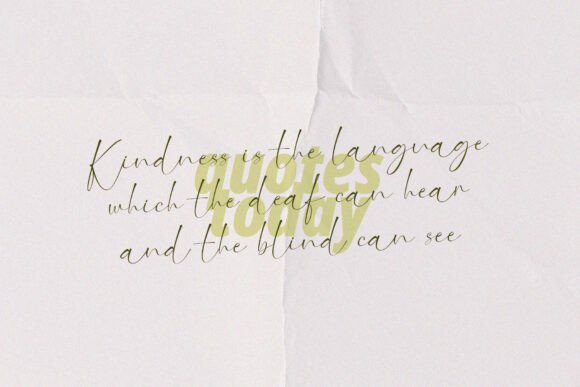 Kindness is the language
quotes
which the deaf can hear
today
and the blind can see